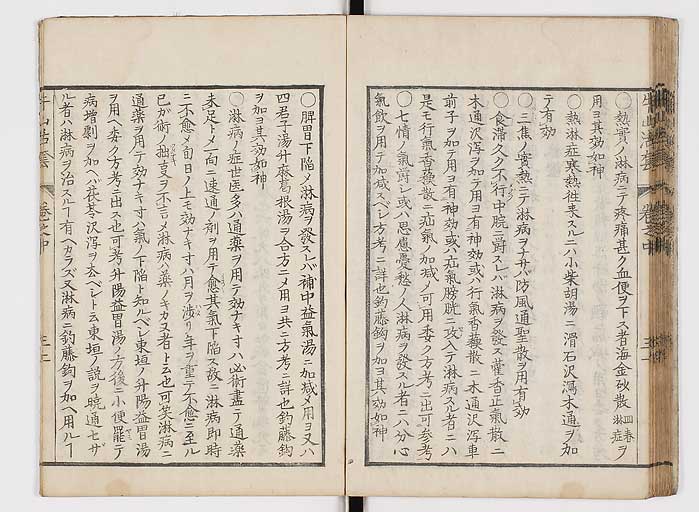 〇熱實ノ淋病ニテ疼痛甚ク血便ヲ下ス者海金砂散 四春ヲ 淋症
用ヨ其効如神
〇熱淋症寒熱往来スルニハ小柴胡湯ニ滑石沢瀉木通ヲ加
テ有効
〇三焦ノ實熱ニテ淋病ヲナサバ防風通聖散ヲ用有効
〇食滞久ク不行中院ニ爵スレバ淋病ヲ發ス藿香正氣散ニ
木通沢瀉ヲ加テ用ヨ有神効或ハ行氣香蘓散ニ木通沢瀉車
前子ヲ加テ用ヨ有神効或ハ疝氣膀胱ニ攻入テ淋病スル者ニハ
是モ行氣香蘓散ニ疝氣ノ加減ノ可用委ク方考ニ出可参考
〇七情ノ氣爵シ或ハ思慮憂愁ノ人淋病ヲ發スル者ニハ分心
氣飲ヲ用テ加減スベシ方考ニ詳也釣藤鈎ヲ加ヨ其効如神
〇脾胃下陥メ淋病ヲ發スレバ補中益氣湯ニ加减メ用ヨ又ハ
四君子湯升麻葛根湯ヲ合方ニメ用ヨ共ニ方考ニ詳也釣藤鈎
ヲ加ヨ其効如神
〇淋病ノ症世医多ハ通薬ヲ用テ効ナキ寸ハ必術盡テ通薬
未足トメ一向ニ速通ノ剤ヲ用テ愈其氣下陥ス故ニ淋病即時
ニ不愈メ旬日ノ上モ効ナキ寸ハ月ヲ渉リ年ヲ重テ不愈ニ至ル
已ガ術ノ拙ヲ不言メ淋病ハ薬ノキカヌ者ト云也可笑淋病ニ
通薬ヲ用テ効ナキ寸ハ氣ノ下陥ト知ルベシ東垣ノ升陽益胃湯
ヲ用ヘ委ク方考ニ出ス也可考升陽益胃湯ノ方後ニ小便罷テ
病増劇ヲ加ヘバ茯苓沢瀉ヲ去ベシト云東垣ノ説ヲ暁通セザ
ル者ハ淋病ヲ治スルヿ有ヘカラズ又淋病ニ釣藤鈎ヲ加ヘ用ルヿ
牛山活套
巻之中